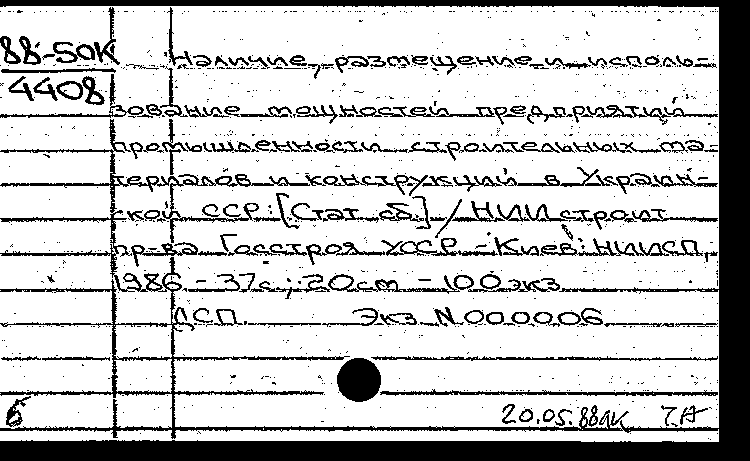 88-50К
4408
Наличие, размещение и исполь-
зование мощностей предприятий
промышленности строительных ма-
териалов и конструкций в Украин-
ской ССР: [Стат сб.] / НИИ строит
пр-ва Госстроя УССР. - Киев: НИИСП,
1986 - 37с.; 20см - 100экз
ДСП. Экз N 000006
б
20.05.88